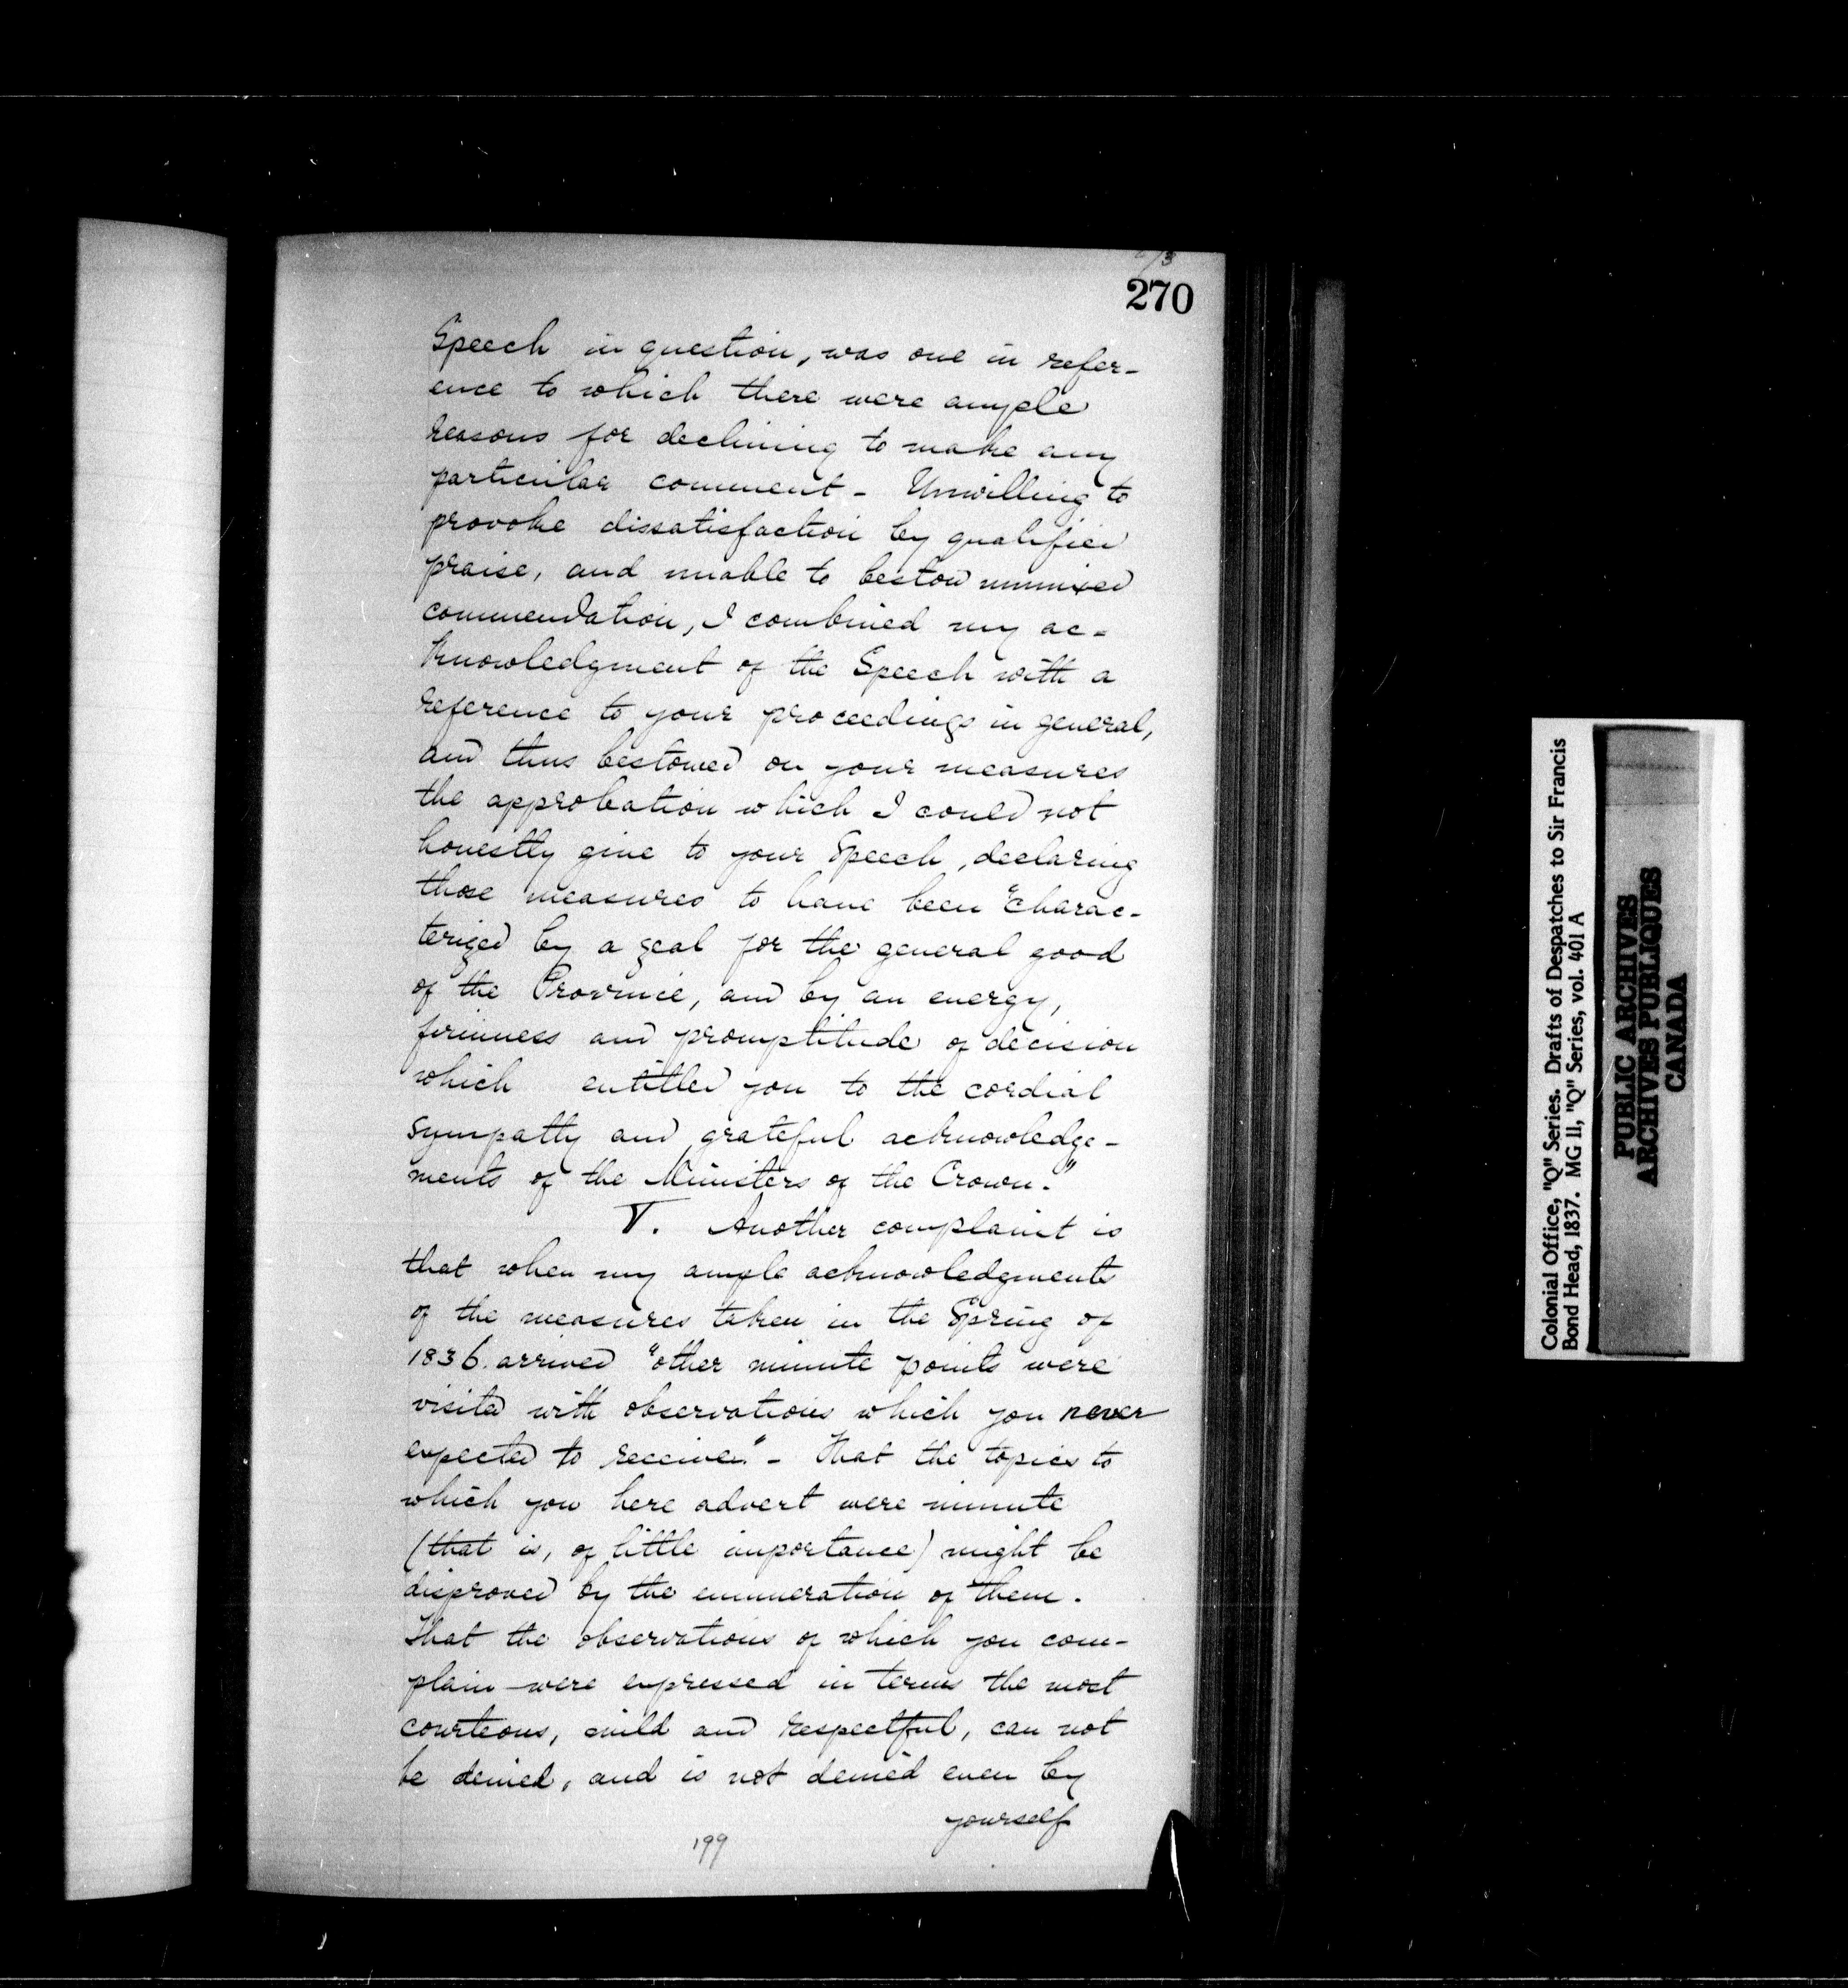 270
Speech in question, was one in refer-
ence to which there were ample
reasons for declining to make any
particular comment - Unwilling to
provoke dissatisfaction by qualified
praise, and unable to bestow unmixed
commendation, I combined my ac-
knowledgment of the Speech with a
reference to your proceedings in general,
and thus bestowed on your measures
the approbation which I could not
honestly give to your Speech, declaring
those measures to have been "charac-
terized by a zeal for the general good
of the Province, and by an energy,
firmness and promptitude of decision
which entitled you to the cordial
sympathy and grateful acknowledge-
ments of the Ministers of the Crown."
V. Another complaint is
that when my ample acknowledgments
of the measures taken in the Spring of
1836. arrived "other minute points were
visited with observations which you never
expected to receive." - That the topics to
which you here advert were minute
(that is, of little importance) might be
disproved by the enumeration of them.
That the observations of which you com-
plain - were expressed in terms the most
courteous, mild and respectful, can not
be denied, and is not denied even by
yourself
199
Colonial Office, "Q" Series. Drafts of Despatches to Sir Francis
Bond Head, 1837. MG 11, "Q" Series, vol. 401 A
PUBLIC ARCHIVES
ARCHIVES PUBLIQUES
CANADA